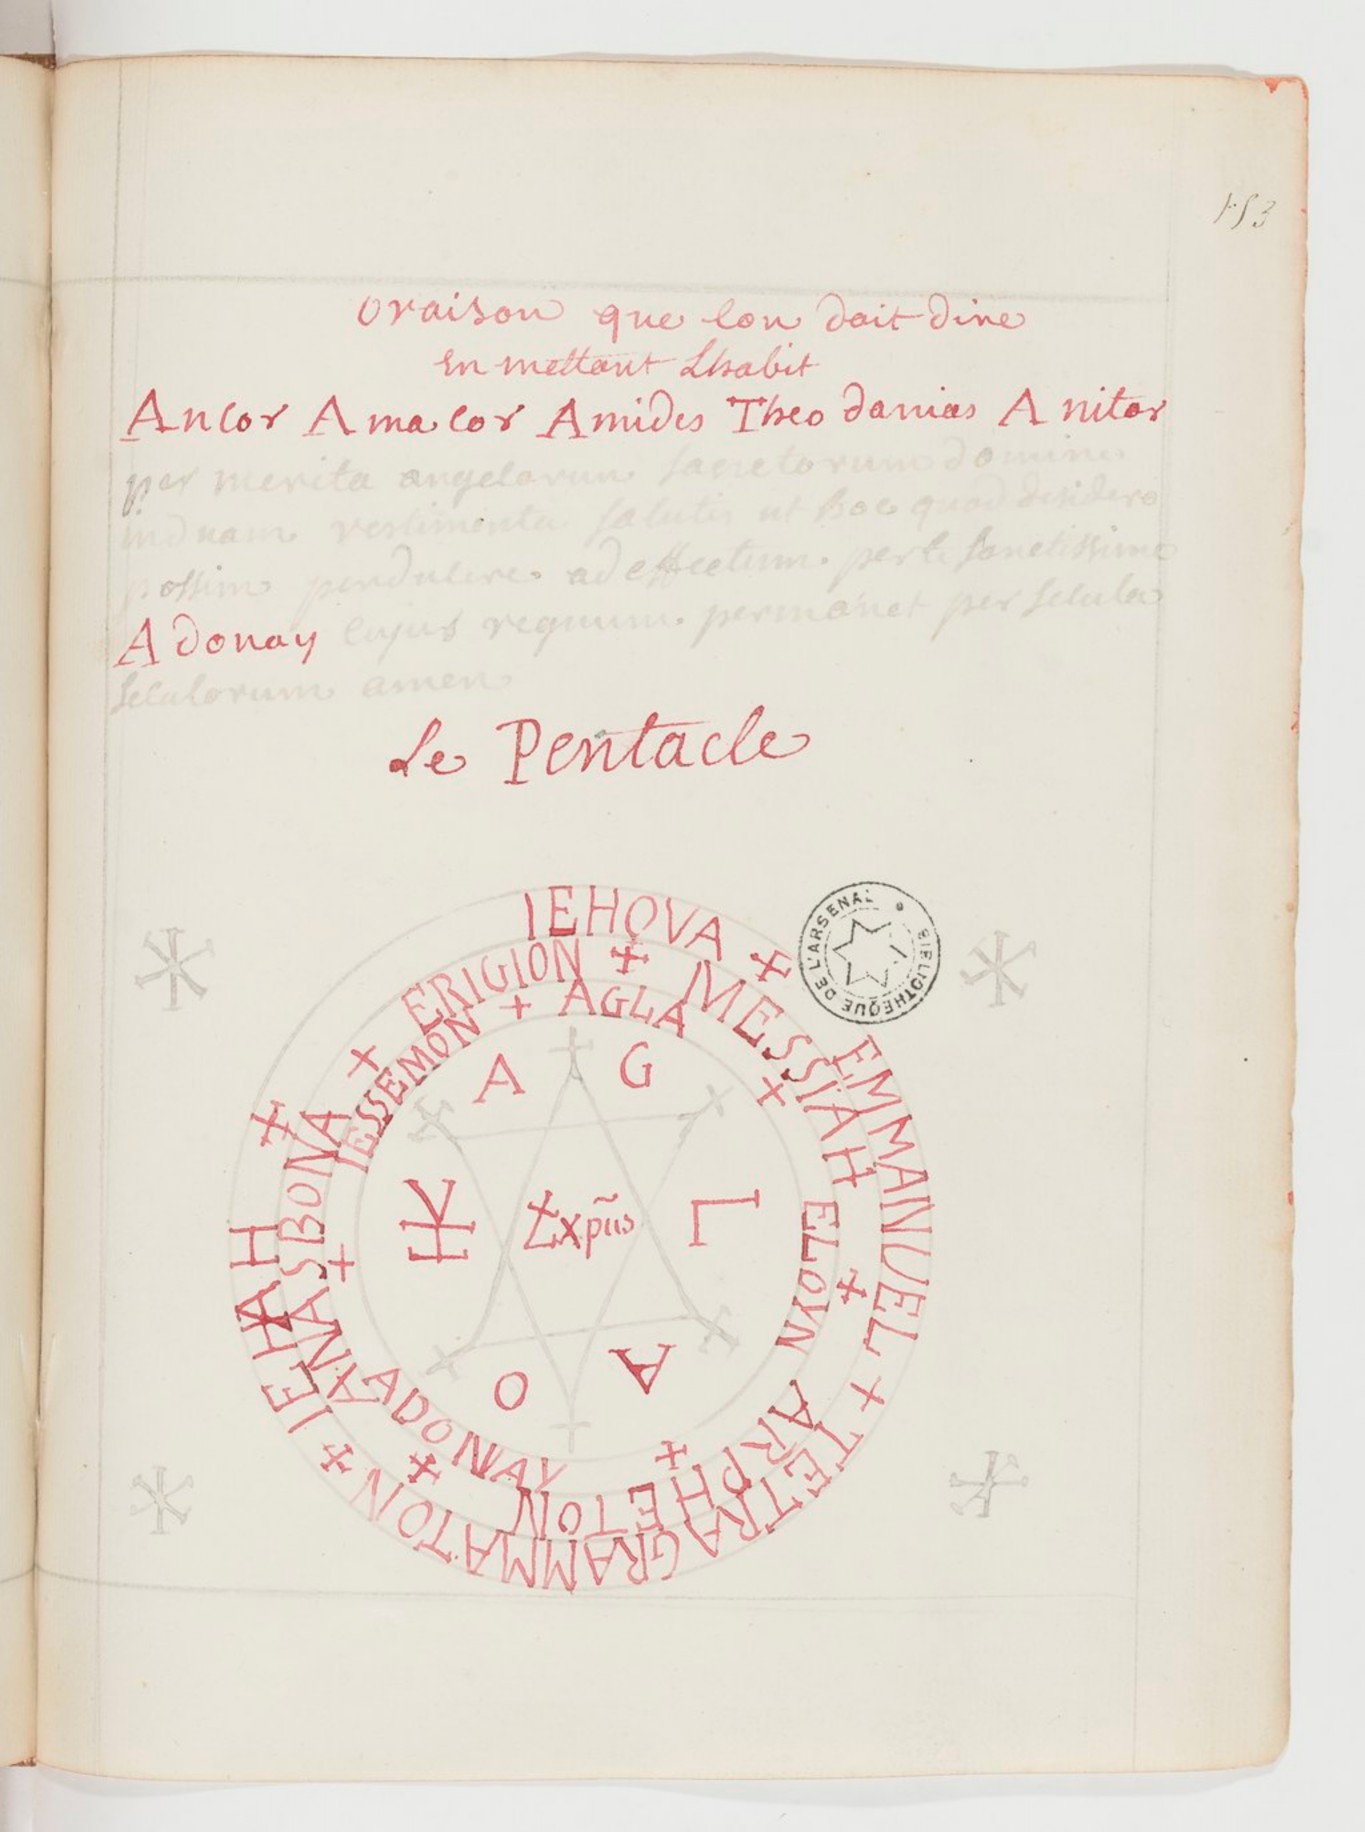 153
oraison que lon doit dire
en mettant Lhabit
Ancor Amacor Amides Theodanias Anitor
per merita angelorum sanctorum domine
induam vestimenta salutis ut hoc quod desidero
possim perducere ad effectum per te sanctissime
Adonay cujus regnum permanet per secula
seculorum amen
Le Pentacle
IEHOVA
EMMANUEL
TETRAGRAMMATON
IEHAH
ERIGION
MESSIAH
ARPHETON
ANASBONA
IESSEMON
AGLA
ELOYN
ADONAY
A G
L
A
O
xpũs
BIBLIOTHEQUE DE L'ARSENAL